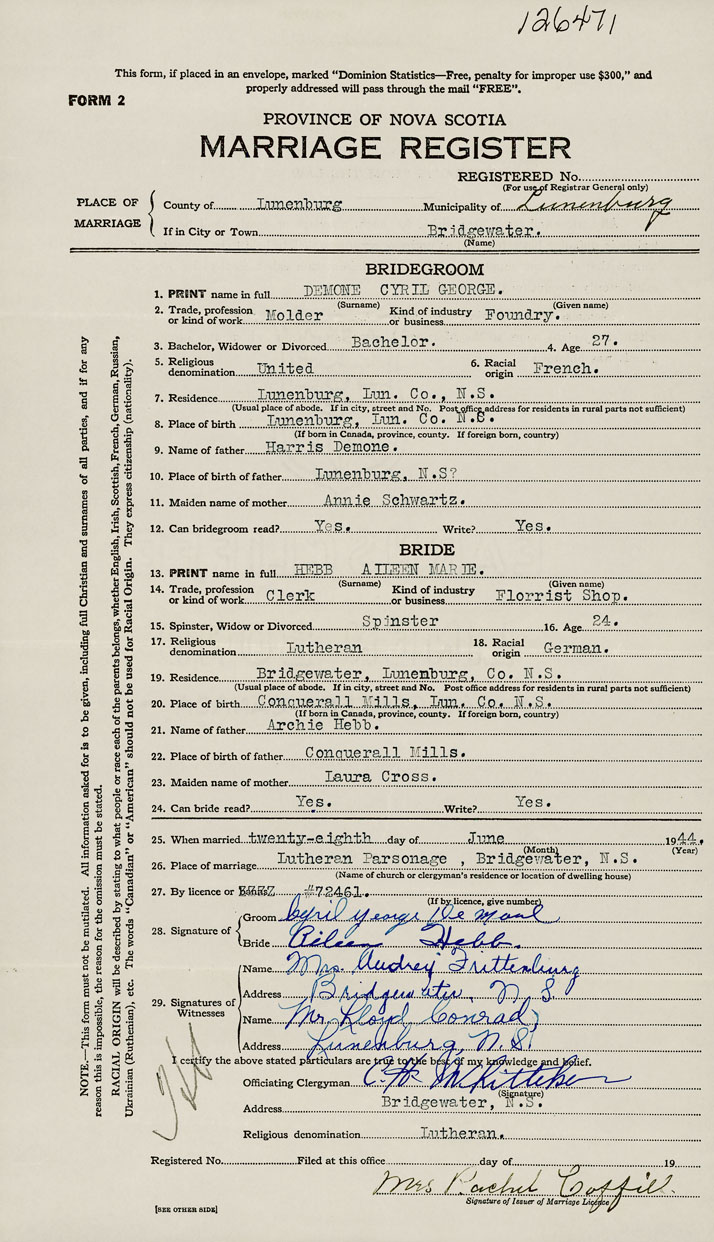 126471
This form, if placed in an envelope, marked “Dominion Statistics—Free, penalty for improper use $300,” and
properly addressed will pass through the mail “FREE”.
FORM 2
PROVINCE OF NOVA SCOTIA
MARRIAGE REGISTER
REGISTERED No.
(For use of Registrar General only)
PLACE OF MARRIAGE
County of Lunenburg Municipality of Lunenburg
If in City or Town Bridgewater.
(Name)
BRIDEGROOM
1. PRINT name in full DEMONE CYRIL GEORGE.
(Surname) (Given name)
2. Trade, profession or kind of work Molder Kind of industry or business Foundry.
3. Bachelor, Widower or Divorced Bachelor. 4. Age 27.
5. Religious denomination United 6. Racial origin French.
7. Residence Lunenburg, Lun. Co., N.S.
(Usual place of abode. If in city, street and No. Post office address for residents in rural parts not sufficient)
8. Place of birth Lunenburg, Lun. Co. N.S.
(If born in Canada, province, county. If foreign born, country)
9. Name of father Harris Demone.
10. Place of birth of father Lunenburg, N.S?
11. Maiden name of mother Annie Schwartz.
12. Can bridegroom read? Yes. Write? Yes.
BRIDE
13. PRINT name in full HEBB AILEEN MARIE.
(Surname) (Given name)
14. Trade, profession or kind of work Clerk Kind of industry or business Florrist Shop.
15. Spinster, Widow or Divorced Spinster 16. Age 24.
17. Religious denomination Lutheran 18. Racial origin German.
19. Residence Bridgewater, Lunenburg, Co. N.S.
(Usual place of abode. If in city, street and No. Post office address for residents in rural parts not sufficient)
20. Place of birth Conquerall Mills, Lun. Co. N.S.
(If born in Canada, province, county. If foreign born, country)
21. Name of father Archie Hebb.
22. Place of birth of father Conquerall Mills.
23. Maiden name of mother Laura Cross.
24. Can bride read? Yes. Write? Yes.
25. When married twenty-eighth day of June 1944.
(Month) (Year)
26. Place of marriage Lutheran Parsonage , Bridgewater, N.S.
(Name of church or clergyman's residence or location of dwelling house)
27. By licence or #72461.
(If by licence, give number)
28. Signature of
Groom Cyril George De mone
Bride Aileen Hebb.
29. Signatures of Witnesses
Name Mrs. Audrey Frittenburg
Address Bridgewater, N S.
Name Mr. Lloyd Conrad,
Address Lunenburg, N.S.
I certify the above stated particulars are true to the best of my knowledge and belief.
Officiating Clergyman C. H. Whitteker
(Signature)
Address Bridgewater, N.S.
Religious denomination Lutheran.
Registered No. Filed at this office day of 19
Mrs Rachel Coffill.
Signature of Issuer of Marriage Licence
[SEE OTHER SIDE]
NOTE.—This form must not be mutilated. All information asked for is to be given, including full Christian and surnames of all parties, and if for any
reason this is impossible, the reason for the omission must be stated.
RACIAL ORIGIN will be described by stating to what people or race each of the parents belongs, whether English, Irish, Scottish, French, German, Russian,
Ukrainian (Ruthenian), etc. The words “Canadian” or “American” should not be used for Racial Origin. They express citizenship (nationality).